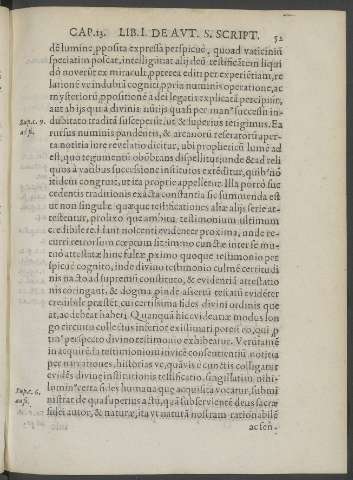 CAP.13. LIB. I. DE AVT. S. SCRIPT. 52
dē lumine, pposita expressa perspicuè, quoad vaticiniū
speciatim poscat, intelligitur alij deū testificātem liqui
dò noverūt ex miraculi, pptereà editi per experiētiam, re
latione vè indubia cogniti, ppria numinis operatione, ac
mysteriorū ppositione à dei legati explicatā percipiūt,
aut abs ijs quâ divinā initijs quasi per man successiū in-
Sup. c. 9. dubitatò traditā susceperūt, ut & superiùs tetigimus. Ea
ad fi. rursus numinis pandentis, & arcanorū reseratorū aper-
ta notitia iure revelatio dicitur, ubi propheticū lumē ad
est, quo tegumentū obūbrans dispellitur; unde & ad reli
quos à vatibus successione institutos extēditur, quib
itidem congruit, ut ita propriè appelletur. Illa porrò suc
cedentis traditionis exācta constantia sic summenda est
ut non singulæ quæque testificationes aliæ alijs serie at-
testentur, prolixo que ambitu testimonium ultimum
credibile reddant nō lenti evidenter proxima, unde re-
curri retrorsum cœptum sit; imò cunctæ inter se mu-
tuò attestātæ hinc faltē pximo quoque testimonio per
spicuè cognito, inde divino testimonio culmē certitudi
nis nacto ad supremi constituto, & evidentiā attestatio
nis contingant, & dogma pinde assertū testatū evidēter
credibile præstēt, cui certissima fides divini ordinis que
at, ac debeat haberi. Quanquā hic evidentiæ modus lon
go circuitu collectus inferior existimari poterit eo, qui p
perspecto divino testimonio exhibeatur. Verūtamē
in acquirēda testimonioru invicē consentientiū notitia
per narrationes, historias vè, quāvis è cunctis colligatur
evidēs divinæ institutionis testificatio, singillatim nihi-
Sup. c. 6. lumin certa fides humana que acquisita vocatur, submi
ad fi. nistrat de qua superius actū, quā subservientē deus sacræ
fidei autor, & naturæ, ita vt naturā nostram rationabilē
ac sen-